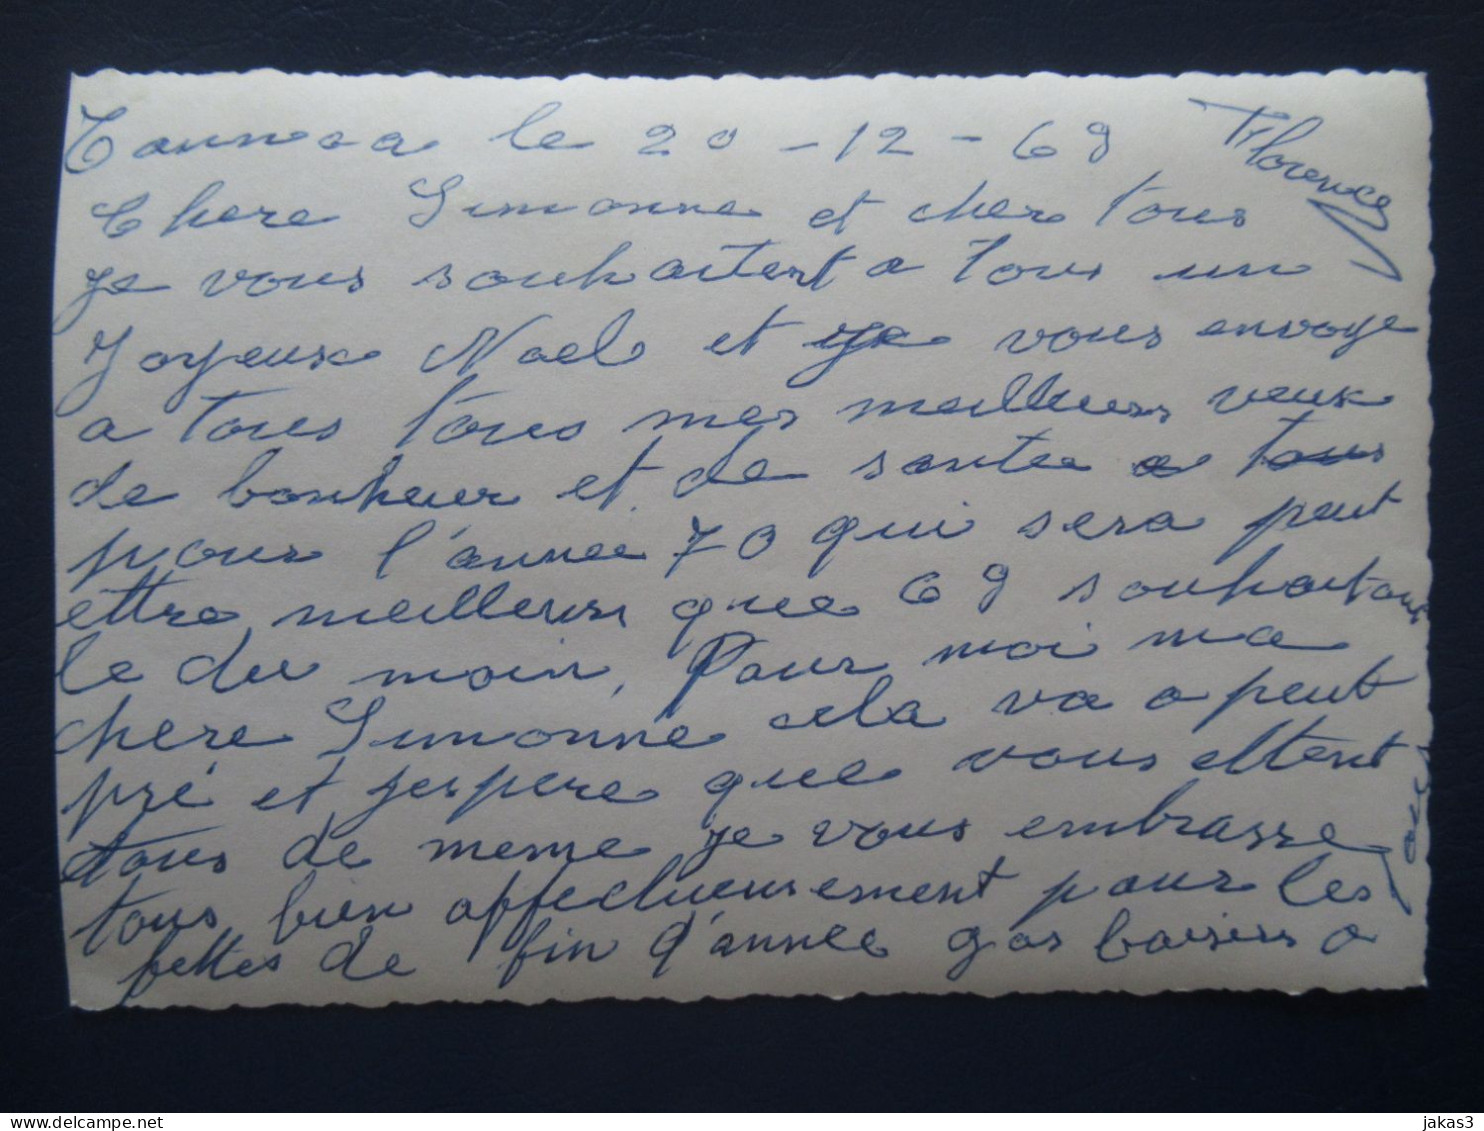 le 20-12-69 Florence
Chere Simonne et cher tous
je vous souhaitent a tous un
Joyeux Noel et je vous envoye
a tous tous mes meilleurs veux
de bonheur et de santee a tous
pour l'année 70 qui sera peut
ettre meilleurs que 69 souhaitons
le du moin. Pour moi ma
chere Simonne cela va a peut
pré et jespere que vous ettent
tous de meme je vous embrasse
tous bien affectueusement pour les
fettes de fin d'année gos baisers a
tous
jakas3